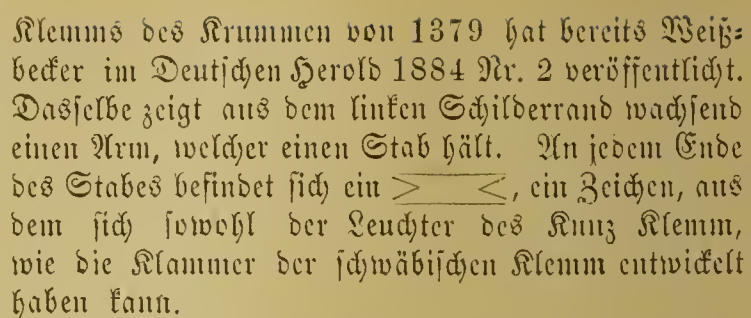 Klemms des Krummen von 1379 hat bereits Weiß-
becker im Deutschen Herold 1884 Nr. 2 veröffentlicht.
Dasselbe zeigt aus dem linken Schilderrand wachsend
einen Arm, welcher einen Stab hält. An jedem Ende
des Stabes befindet sich ein > <, ein Zeichen, aus
dem sich sowohl der Leuchter des Kunz Klemm,
wie die Klammer der schwäbischen Klemm entwickelt
haben kann.